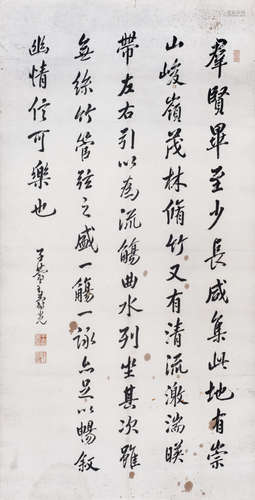 羣賢畢至少長咸集此地有崇
山峻嶺茂林脩竹又有清流激湍暎
帶左右引以為流觴曲水列坐其次雖
無絲竹管弦之盛一觴一詠亦足以暢叙
幽情信可樂也